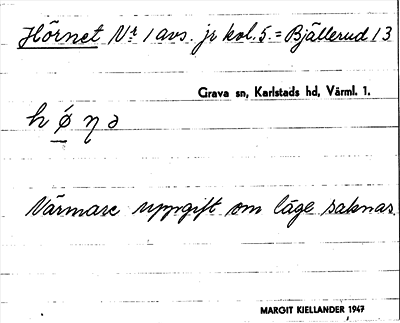 Hörnet Nr 1 avs. jr kvl. 5. = Bjällerud 1 3
Grava sn, Karlstads hd, Värml. l.
h ǿ ŋ ə
Närmare uppgift om läge saknas.
MARGIT KIELLANDER 1947